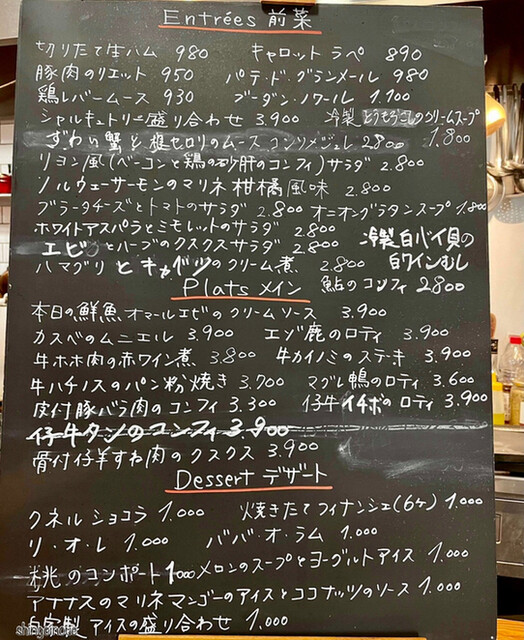 Entrées 前菜
切りたて生ハム 980 キャロットラペ 890
豚肉のリエット 950 パテ・ド・グランメール 980
鶏レバームース 930 ブーダン・ノワール 1.100
シャルキュトリー盛り合わせ 3.900 冷製とうもろこしのクリームスープ 1.800
ずわい蟹と根セロリのムース コンソメジュレ 2.800
リヨン風(ベーコンと鶏の砂肝のコンフィ)サラダ 2.800
ノルウェーサーモンのマリネ 柑橘風味 2.800
ブラータチーズとトマトのサラダ 2.800 オニオングラタンスープ 1.800
ホワイトアスパラとミモレットのサラダ 2.800
エビとハーブのクスクスサラダ 2.800 冷製白バイ貝の白ワインむし
ハマグリとキャベツのクリーム煮 2.800 鮎のコンフィ 2800
Plats メイン
本日の鮮魚 オマールエビのクリームソース 3.900
カスベのムニエル 3.900 エゾ鹿のロティ 3.900
牛ホホ肉の赤ワイン煮 3.800 牛カイノミのステーキ 3.900
牛ハチノスのパン粉焼き 3.700 マグレ鴨のロティ 3.600
皮付豚バラ肉のコンフィ 3.300 仔牛イチボのロティ 3.900
仔牛タンのコンフィ 3.900
骨付仔羊すね肉のクスクス 3.900
Dessert デザート
クネルショコラ 1.000 焼きたてフィナンシェ(6ケ) 1.000
リ・オ・レ 1.000 ババ・オ・ラム 1.000
桃のコンポート 1000 メロンのスープとヨーグルトアイス 1.000
アナナスのマリネ マンゴーのアイスとココナッツのソース 1.000
自家製アイスの盛り合わせ 1.000